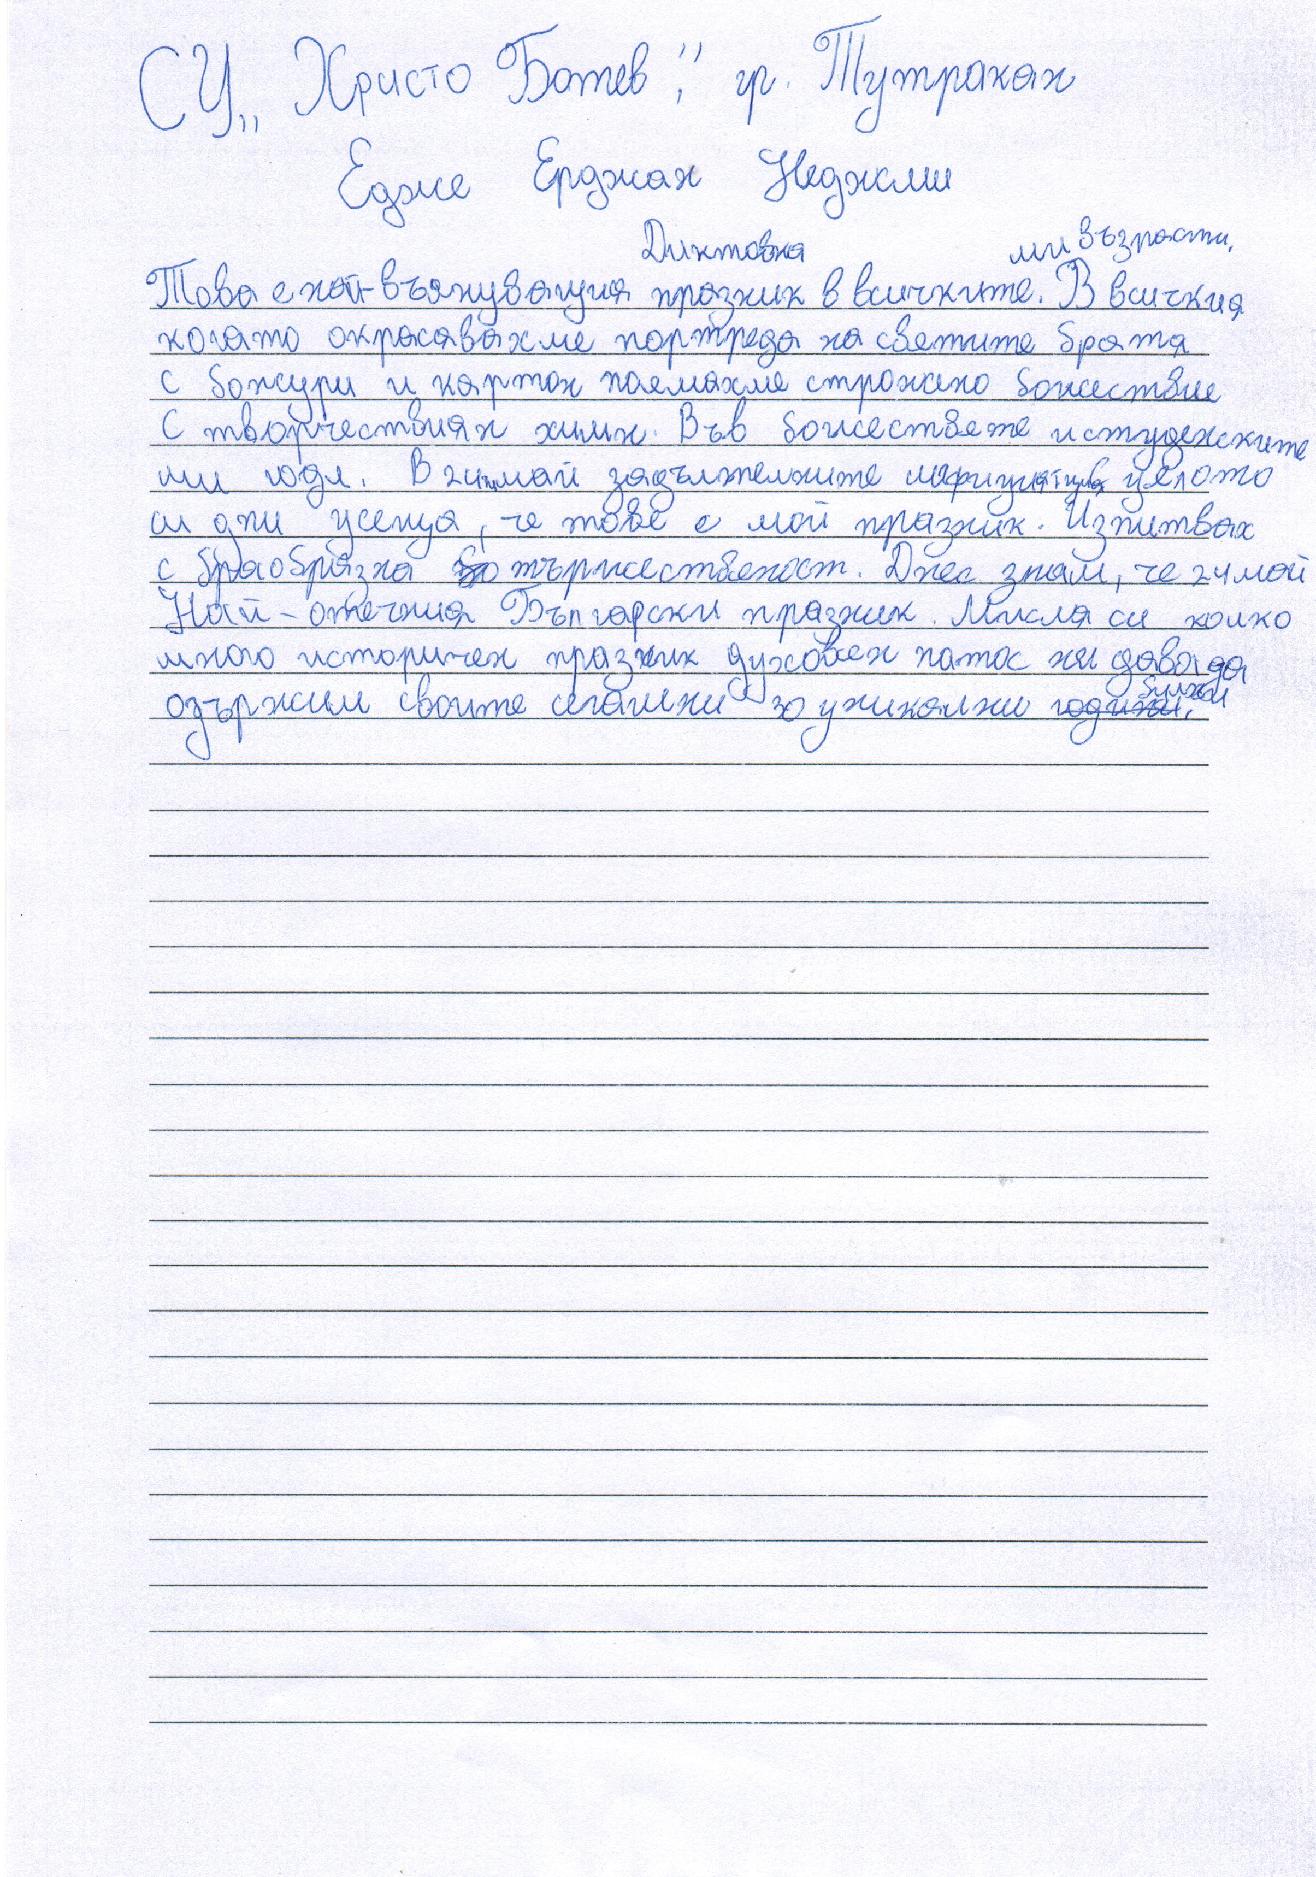 СУ „Христо Ботев“, гр. Тутракан
Едже Ерджан Неджми
Диктовка
ми възрасти.
Това е най-вълнуващия празник в всичките. В всичкия
когато окрасявахме портрета на светите братя
с божури и картон поемахме строжено божествие
С творчествиян химн. Във божествете и студенските
ми годи. В 24 май задължелните цялото
си дни усенуа, че тове е мой празник. Изпитвах
с браобрязна тържественост. Днес знам, че 24 май
Най-отечния Български празник. Мисля си колко
много историчен празник духовен патос ни дава да
одържим своите сегашни за уникални